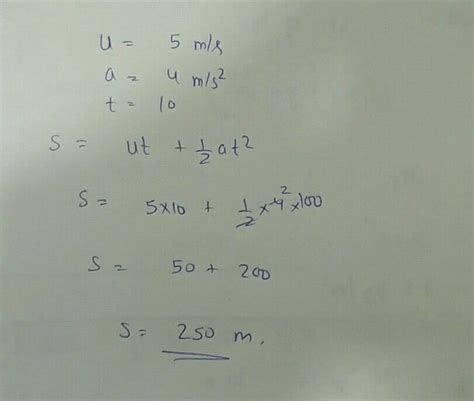 u = 5 m/s
a = 4 m/s²
t = 10
S = ut + 1/2 at²
S = 5×10 + 1/2 × 4² × 100
S = 50 + 200
S = 250 m.